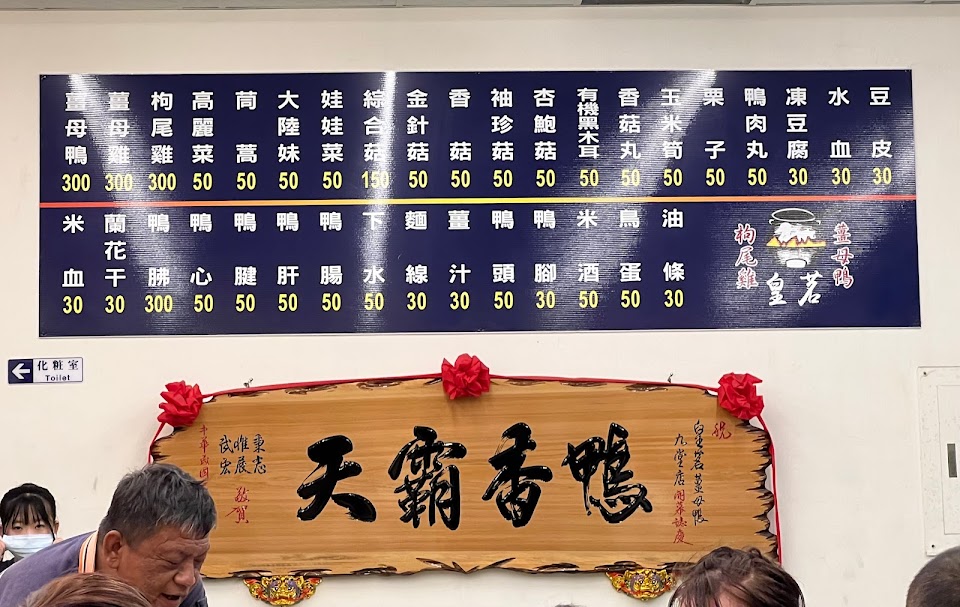 薑母鴨 300
薑母雞 300
枸尾雞 300
高麗菜 50
茼蒿 50
大陸妹 50
娃娃菜 50
綜合菇 150
金針菇 50
香菇 50
袖珍菇 50
杏鮑菇 50
有機黑木耳 50
香菇丸 50
玉米筍 50
栗子 50
鴨肉丸 50
凍豆腐 30
水血 30
豆皮 30
米血 30
蘭花干 30
鴨胇 300
鴨心 50
鴨腱 50
鴨肝 50
鴨腸 50
下水 50
麵線 30
薑汁 30
鴨頭 50
鴨腳 30
米酒 50
鳥蛋 50
油條 30
枸尾雞
皇茗
薑母鴨
化粧室
Toilet
祝
皇茗薑母鴨
九堂店開幕誌慶
鴨香霸天
秉志
惟展
武宏
敬賀
中華民國